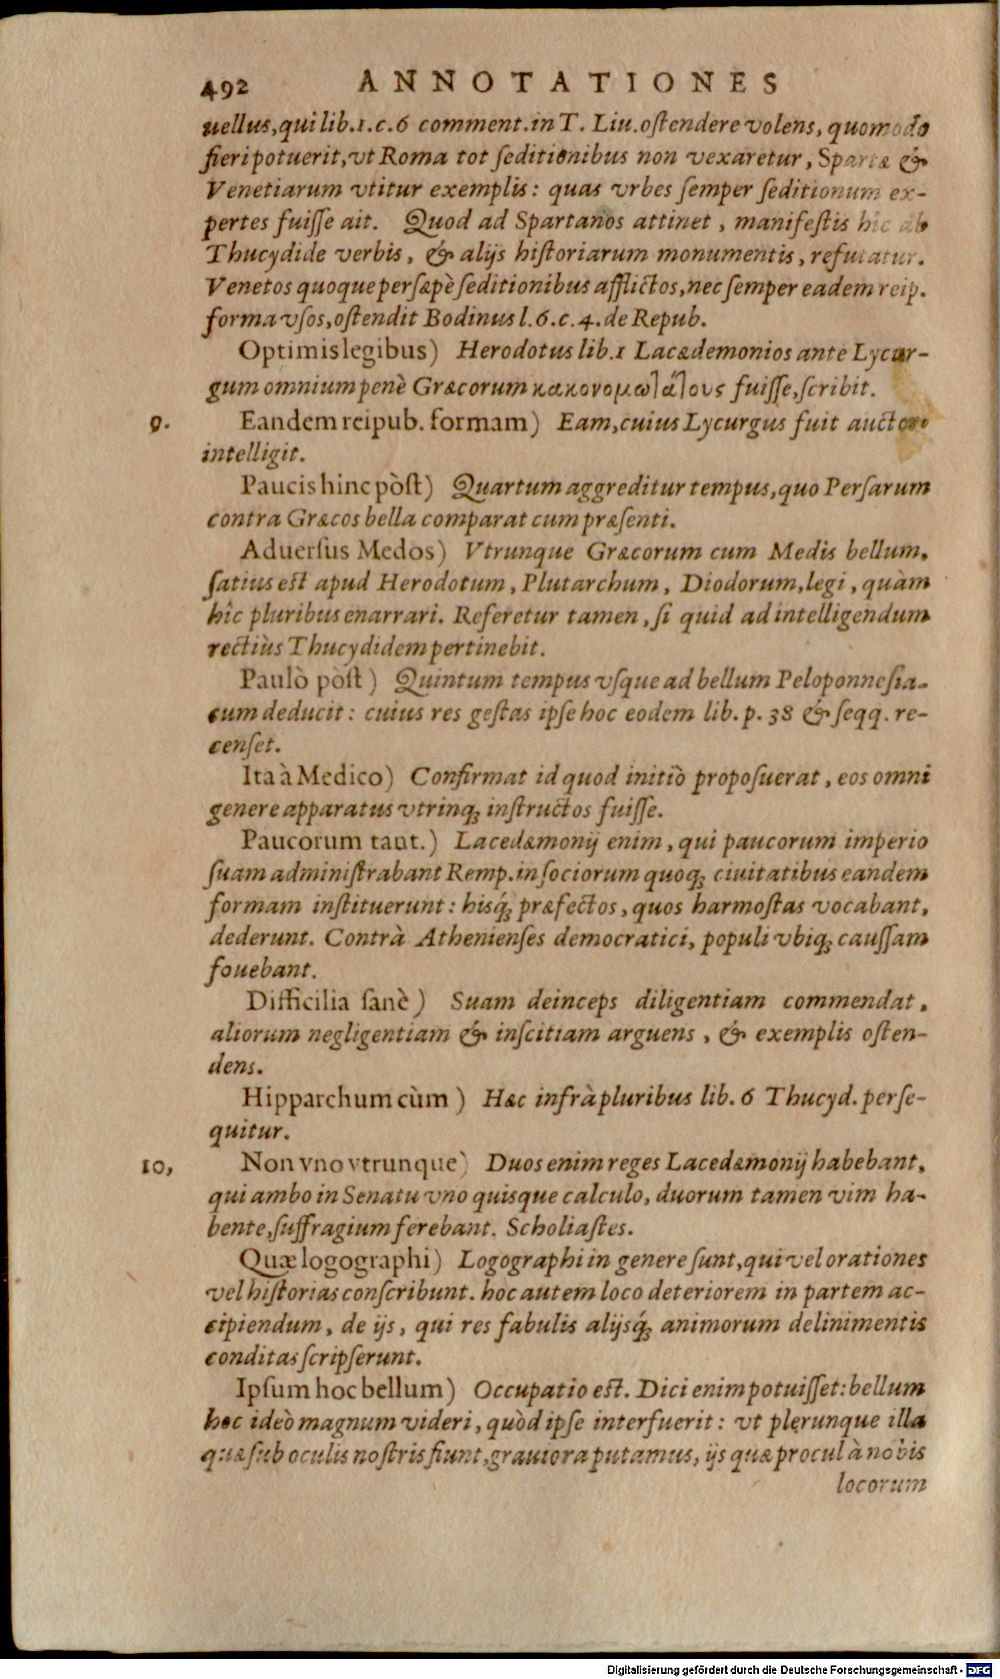 492 ANNOTATIONES
uellus, qui lib.1.c.6 comment.in T. Liu.oſtendere volens, quomodo
fieri potuerit, vt Roma tot ſeditionibus non vexaretur, Spartæ &
Venetiarum vtitur exemplis: quas vrbes ſemper ſeditionum ex-
pertes fuiſſe ait. Quod ad Spartanos attinet, manifeſtis hîc ab
Thucydide verbis, & alijs hiſtoriarum monumentis, refutatur.
Venetos quoque perſæpè ſeditionibus afflictos, nec ſemper eadem reip.
forma vſos, oſtendit Bodinus l.6.c.4.de Repub.
Optimis legibus) Herodotus lib.1 Lacædemonios ante Lycur-
gum omnium penè Græcorum κακονομωτάτους fuiſſe, ſcribit.
9. Eandem reipub. formam) Eam, cuius Lycurgus fuit auctor
intelligit.
Paucis hinc pòst) Quartum aggreditur tempus, quo Perſarum
contra Græcos bella comparat cum præſenti.
Aduerſus Medos) Vtrunque Græcorum cum Medis bellum,
ſatius est apud Herodotum, Plutarchum, Diodorum, legi, quàm
hîc pluribus enarrari. Referetur tamen, ſi quid ad intelligendum
rectiùs Thucydidem pertinebit.
Paulò pòst) Quintum tempus vſque ad bellum Peloponneſia-
cum deducit: cuius res geſtas ipſe hoc eodem lib. p. 38 & ſeqq. re-
cenſet.
Ita à Medico) Confirmat id quod initiò propoſuerat, eos omni
genere apparatus vtrinq; inſtructos fuiſſe.
Paucorum tant.) Lacedæmonij enim, qui paucorum imperio
ſuam adminiſtrabant Remp. in ſociorum quoq; ciuitatibus eandem
formam inſtituerunt: hisq́; præfectos, quos harmoſtas vocabant,
dederunt. Contrà Athenienſes democratici, populi vbiq; cauſſam
fouebant.
Difficilia ſanè) Suam deinceps diligentiam commendat,
aliorum negligentiam & inſcitiam arguens, & exemplis oſten-
dens.
Hipparchum cùm) Hæc infrà pluribus lib. 6 Thucyd. perſe-
quitur.
10, Non vno vtrunque) Duos enim reges Lacedæmonij habebant,
qui ambo in Senatu vno quisque calculo, duorum tamen vim ha-
bente, ſuffragium ferebant. Scholiaſtes.
Quæ logographi) Logographi in genere ſunt, qui vel orationes
vel hiſtorias conſcribunt. hoc autem loco deteriorem in partem ac-
cipiendum, de ijs, qui res fabulis alijsq́; animorum delinimentis
conditas ſcripſerunt.
Ipſum hoc bellum) Occupatio est. Dici enim potuiſſet: bellum
hoc ideò magnum videri, quòd ipſe interfuerit: vt plerunque illa
quæ ſub oculis noſtris fiunt, grauiora putamus, ijs quæ procul à nobis
locorum
Digitalisierung gefördert durch die Deutsche Forschungsgemeinschaft - DFG